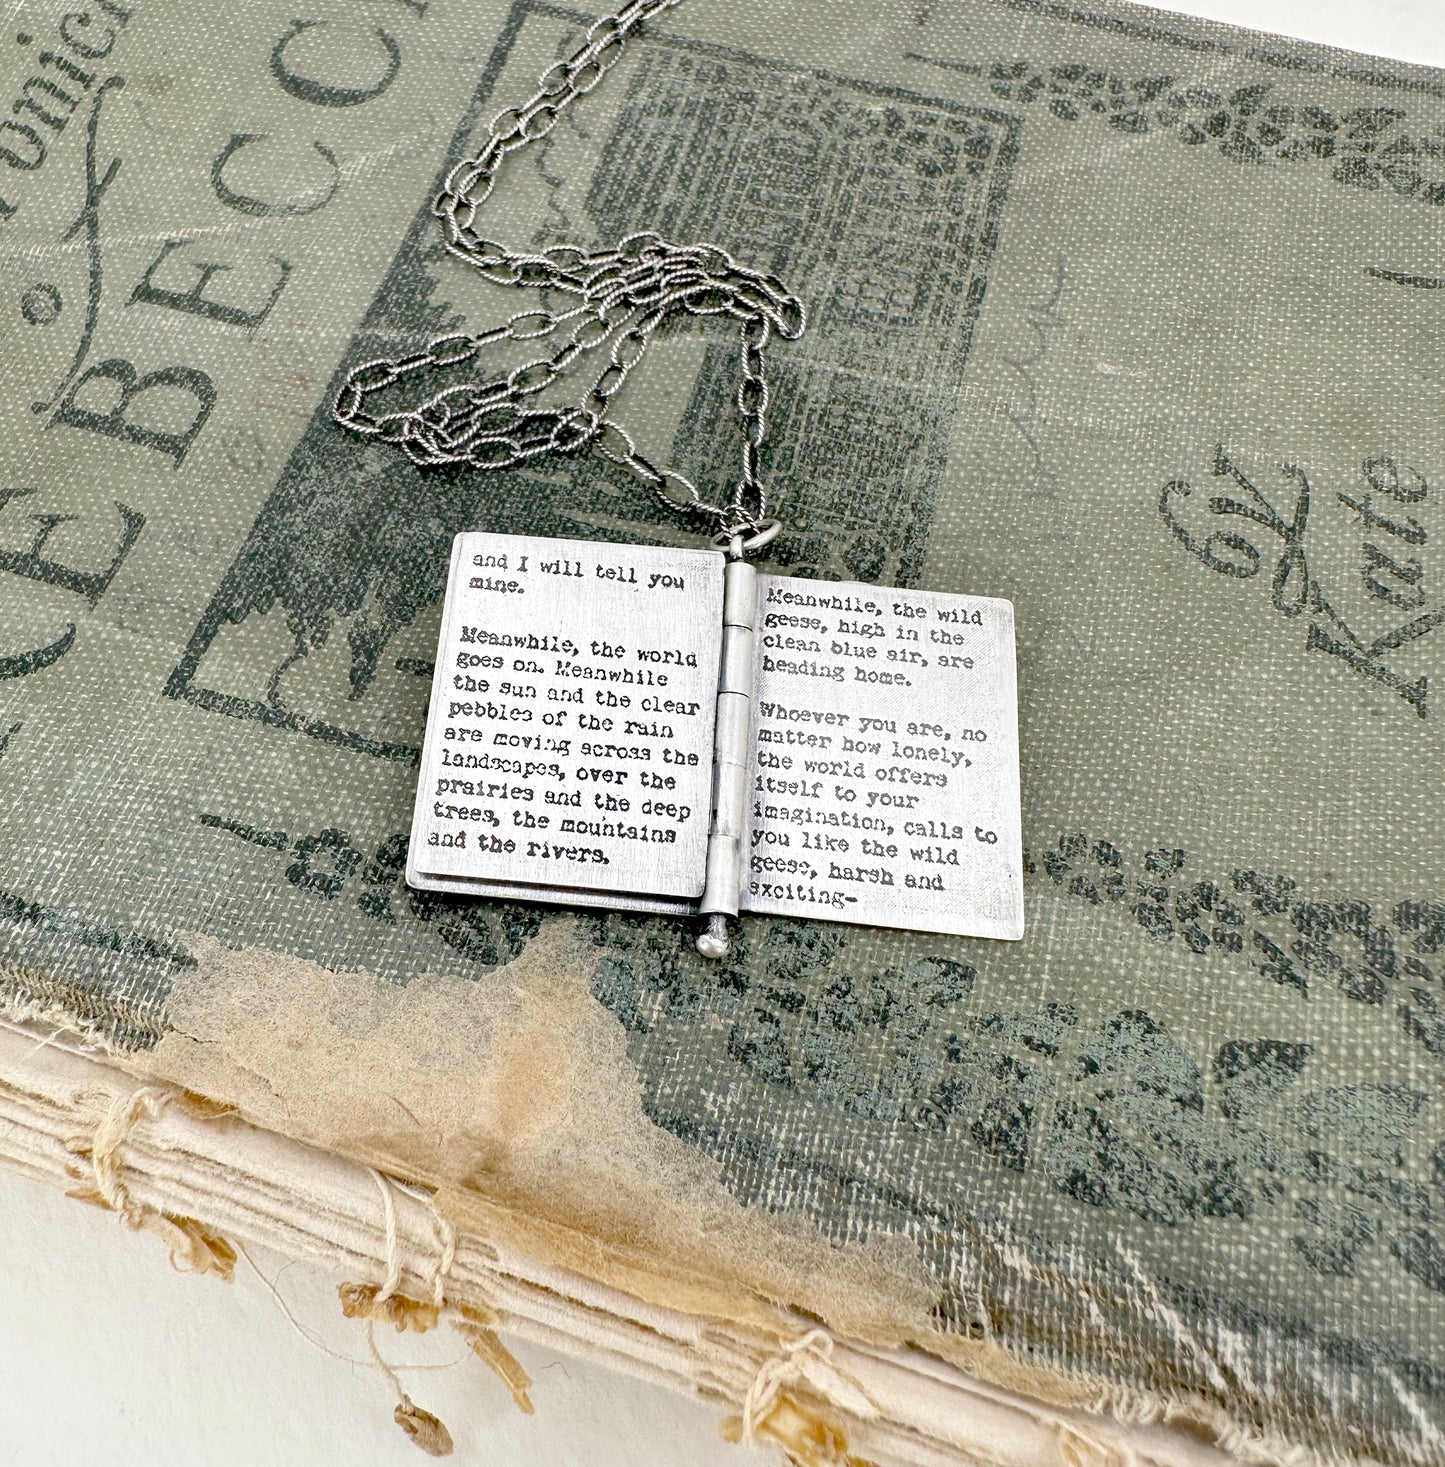 and I will tell you
mine.
Meanwhile, the world
goes on. Meanwhile
the sun and the clear
pebbles of the rain
are moving across the
landscapes, over the
prairies and the deep
trees, the mountains
and the rivers.
Meanwhile, the wild
geese, high in the
clean blue air, are
heading home.
Whoever you are, no
matter how lonely,
the world offers
itself to your
imagination, calls to
you like the wild
geese, harsh and
exciting-
EBECC
By
Kate